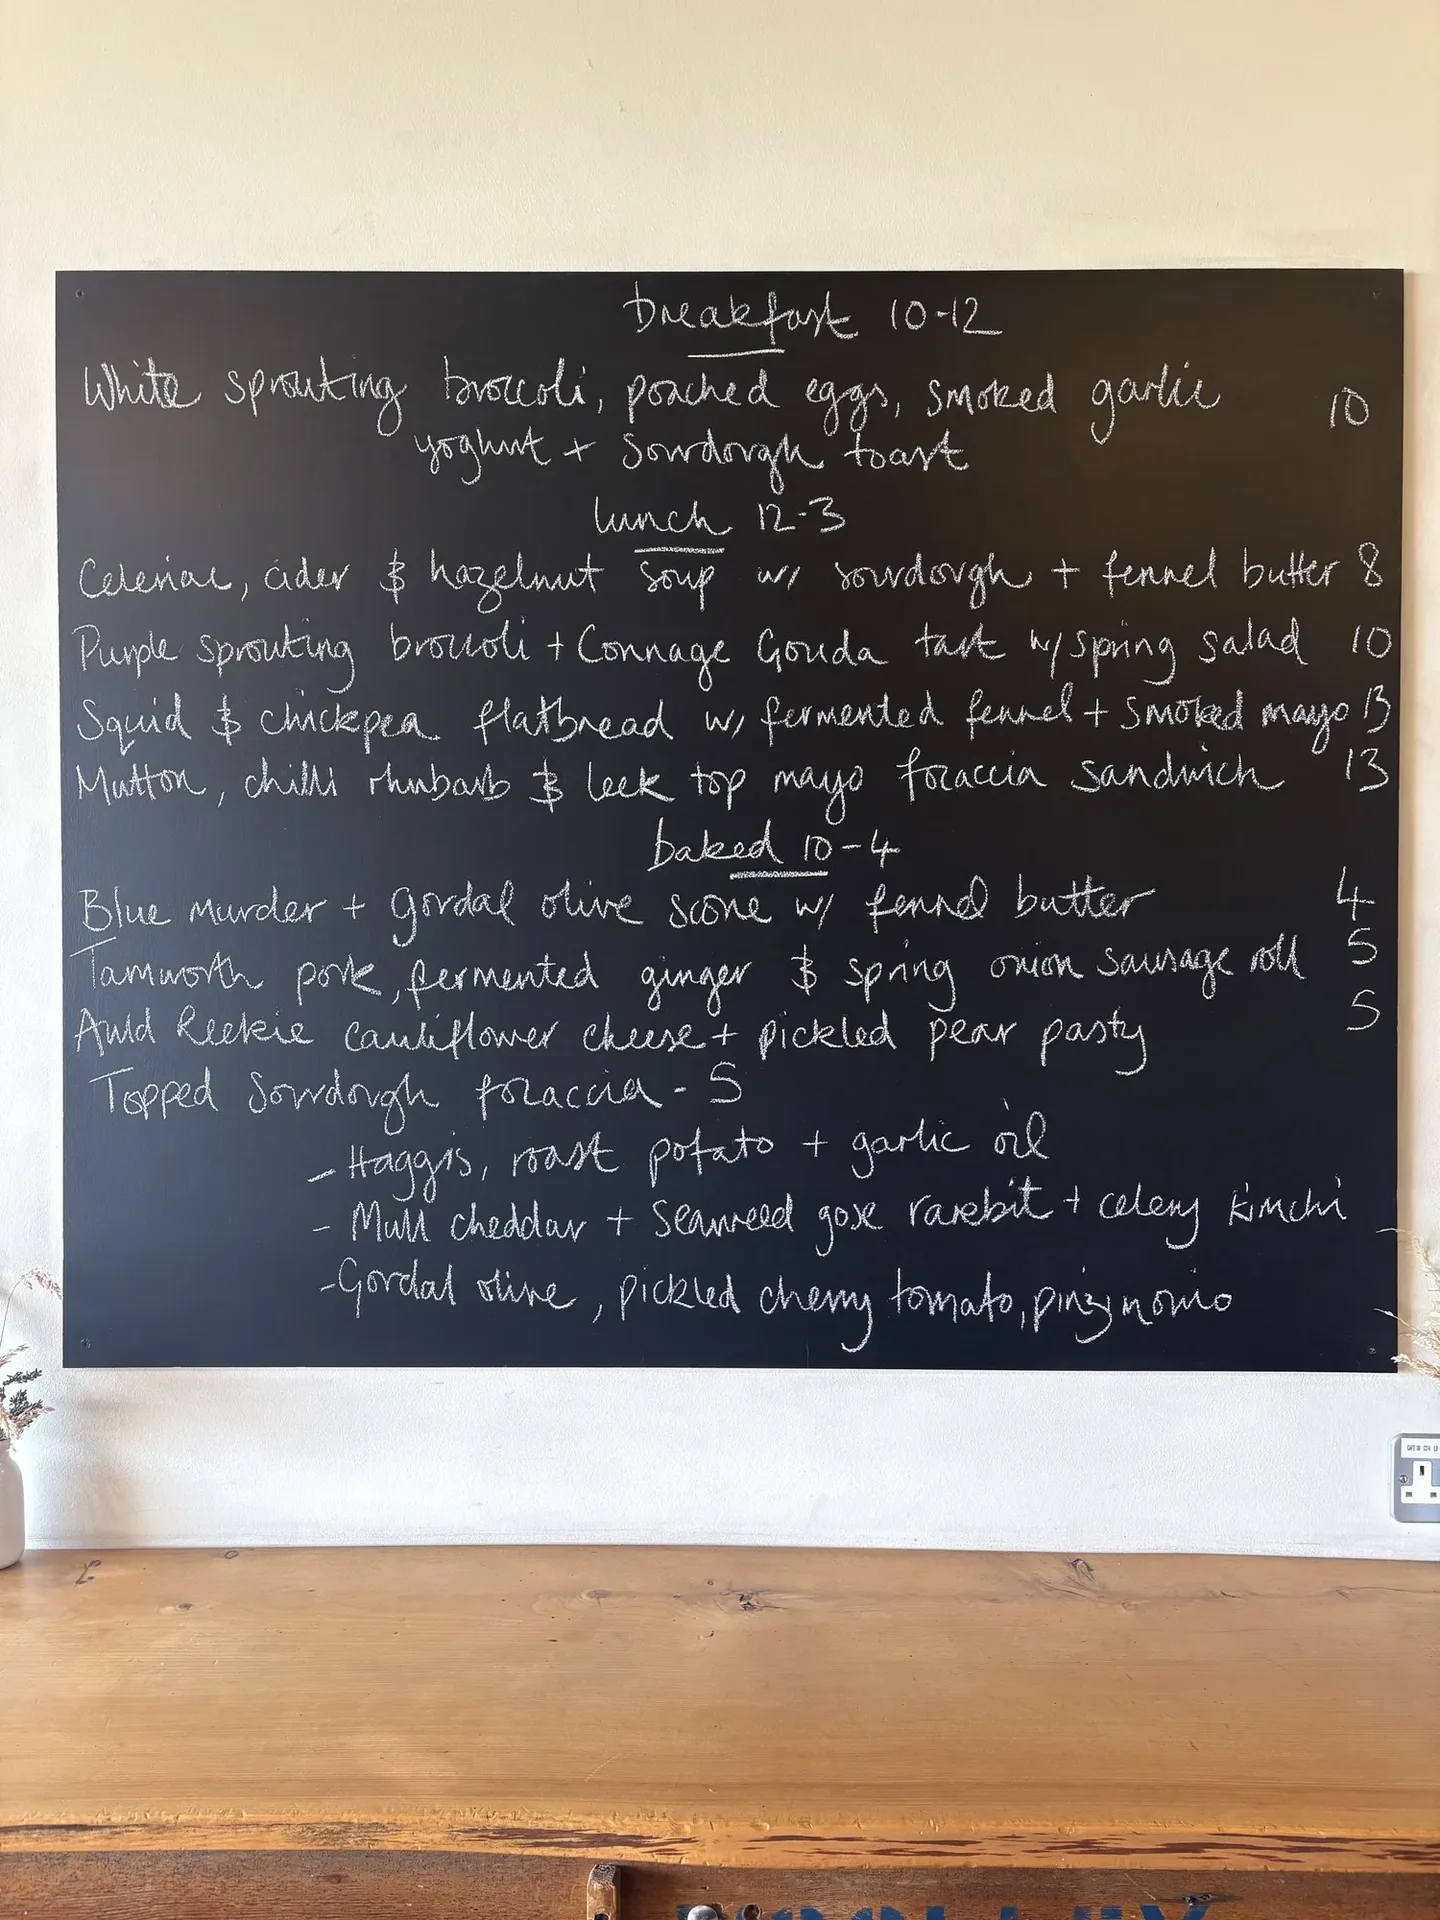 breakfast 10-12
White sprouting broccoli, poached eggs, smoked garlic 10
yoghurt + sourdough toast
lunch 12-3
Celeriac, cider & hazelnut soup w/ sourdough + fennel butter 8
Purple sprouting broccoli + Connage Gouda tart w/ spring salad 10
Squid & chickpea flatbread w/ fermented fennel + smoked mayo 13
Mutton, chilli rhubarb & leek top mayo focaccia sandwich 13
baked 10-4
Blue murder + gordal olive scone w/ fennel butter 4
Tamworth pork, fermented ginger & spring onion sausage roll 5
Auld Reekie cauliflower cheese + pickled pear pasty 5
Topped sourdough focaccia - 5
- Haggis, roast potato + garlic oil
- Mull cheddar + seaweed gose rarebit + celery kimchi
- Gordal olive, pickled cherry tomato, pinzimonio